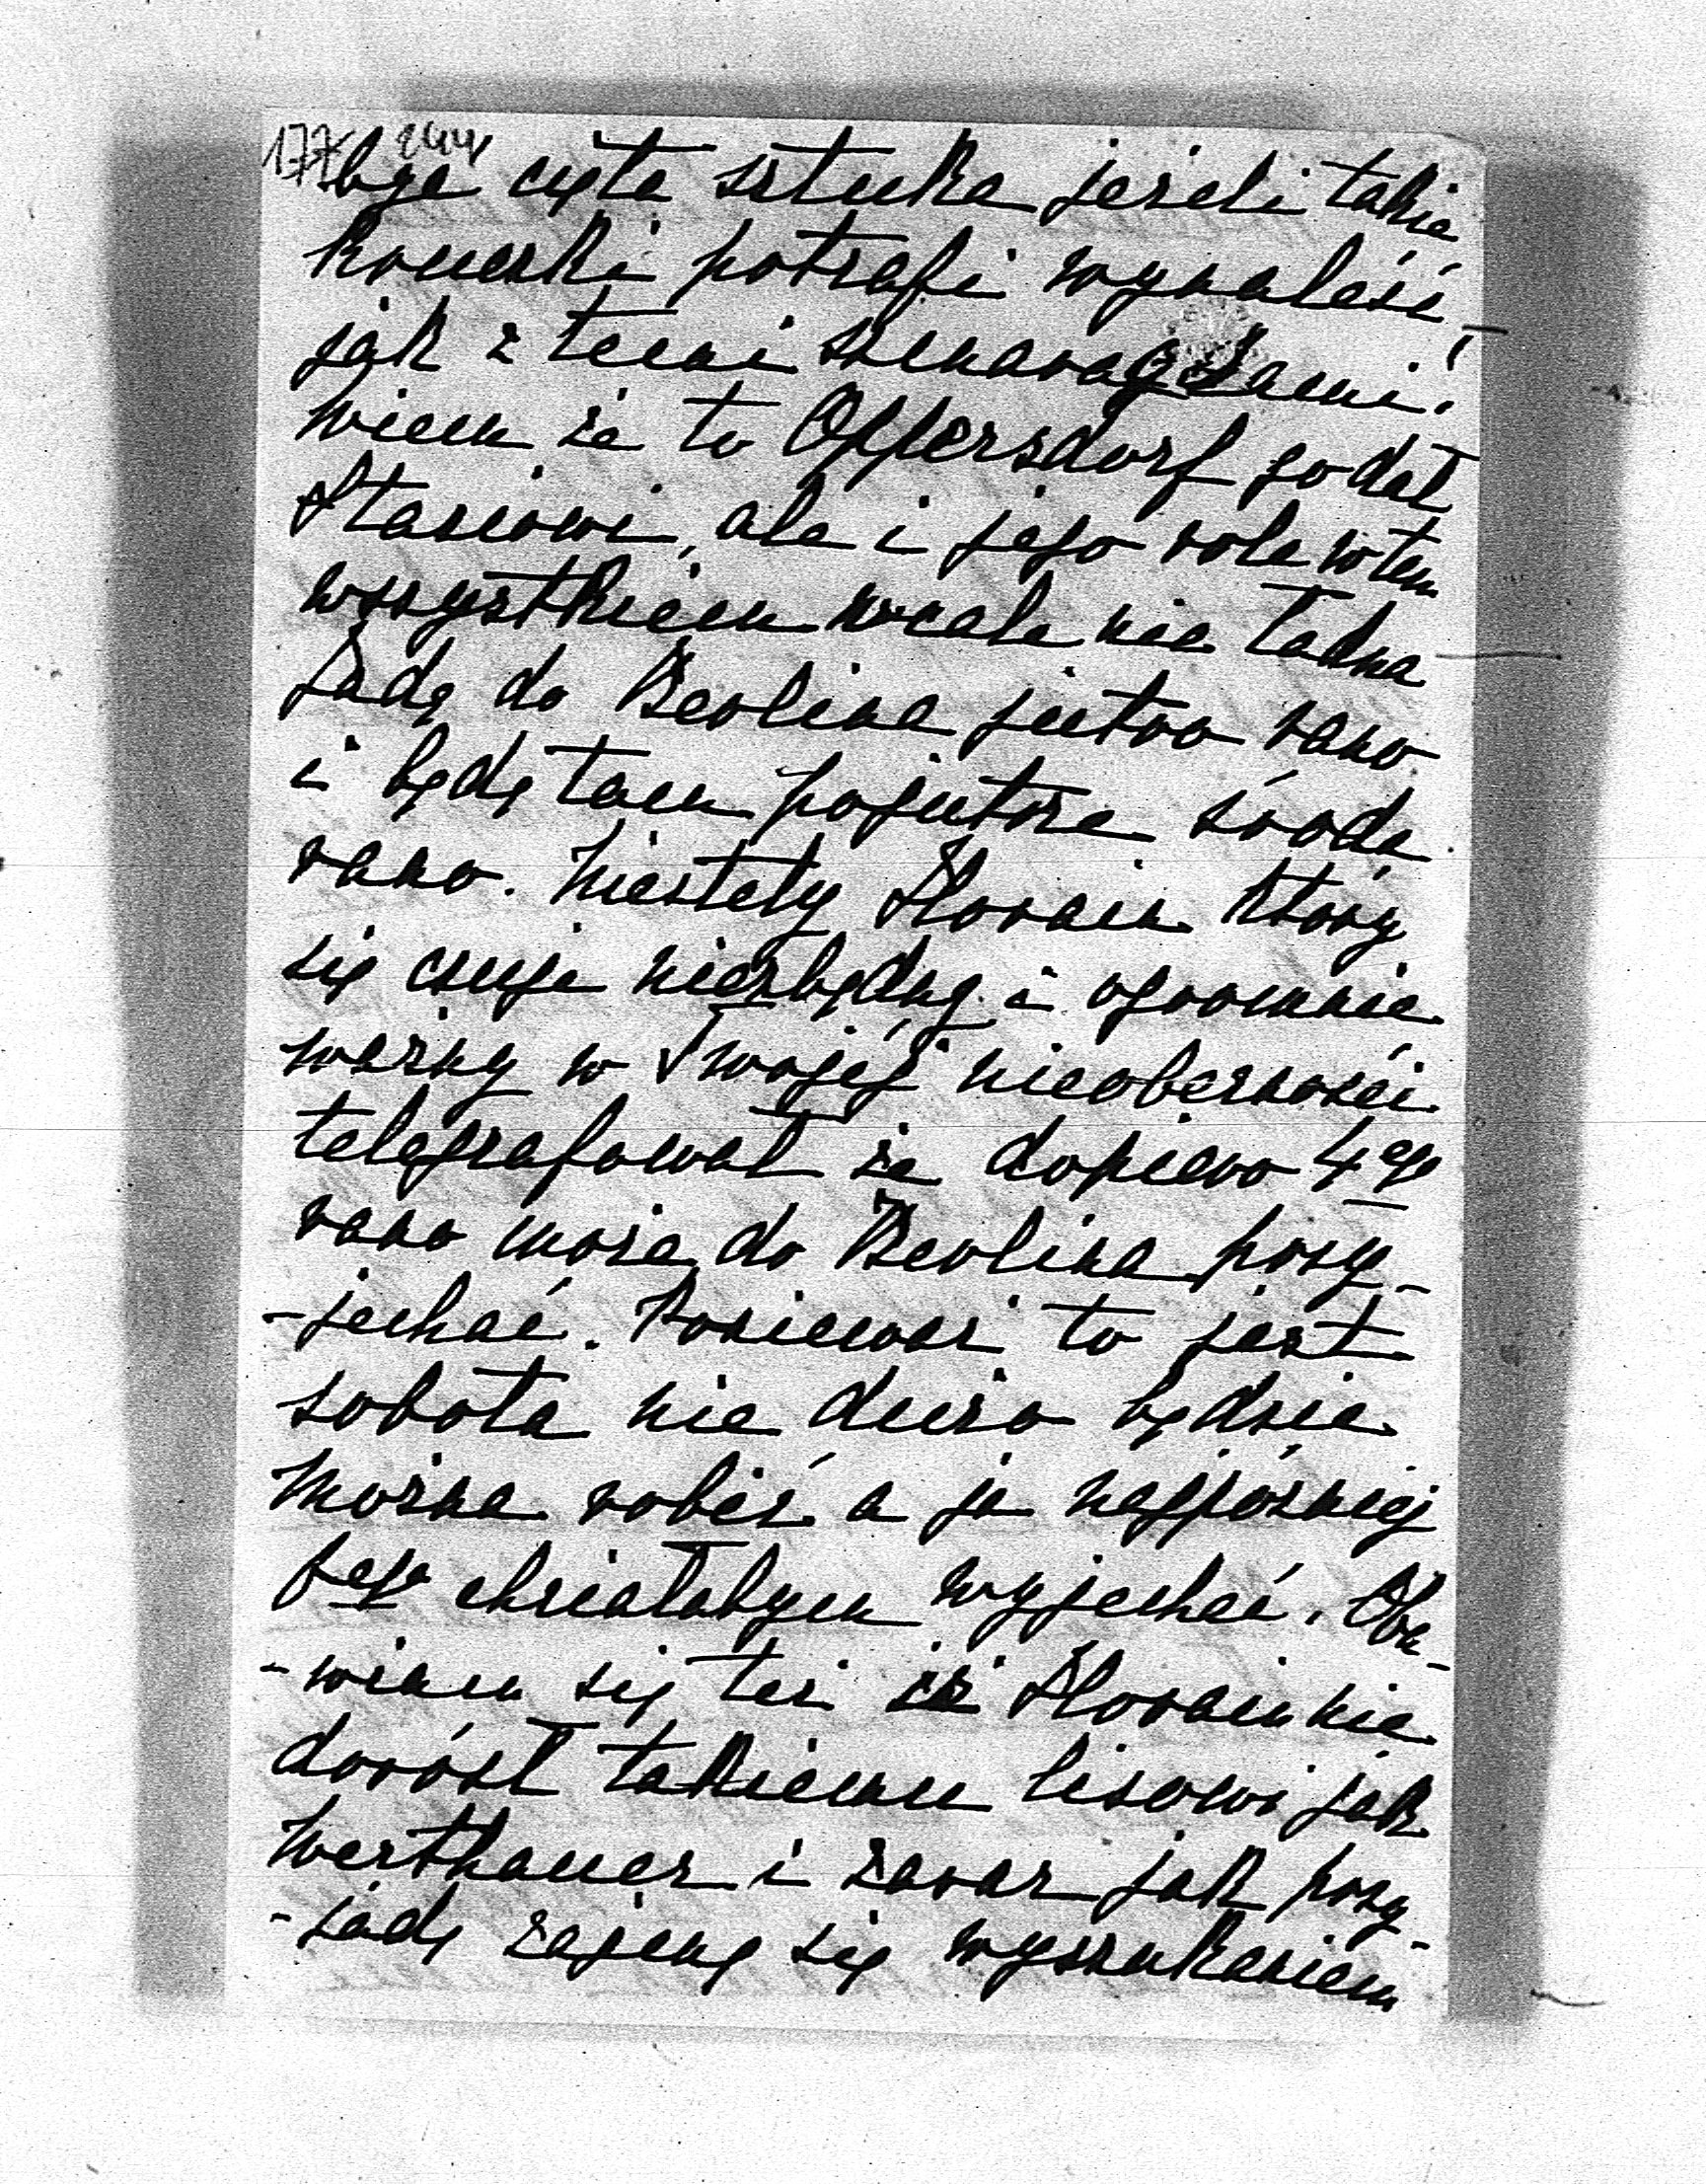 177
być cięta sztuka jeżeli takie
kruczki potrafi wynaleść
jak z temi szmaragdami!
wiem że to Oppersdorf go dał
Stasiowi, ale i jego rola w tem
wszystkiem wcale nie ładna
Jadę do Berlina jutro rano
i będę tam pojutrze środa
rano. Niestety Florain który
się czuje niezbędny i ogromnie
ważny w Twojéj nieobecności
telegrafował że dopiero 4go
rano może do Berlina przy-
-jechać. Ponieważ to jest
sobota nie dużo będzie
można robić a ja najpóźniej
8go chciałabym wyjechać. Oba-
-wiam się też iż Florain nie
dorósł takiemu lisowi jak
Werthauer i zaraz jak przy-
-jadę zajmę się wyszukaniem